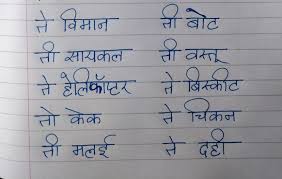 ते विमान ती बोट
ती सायकल ती वस्तू
ते हेलिकॉप्टर ते बिस्कीट
तो केक ते चिकन
ती मलई ते दही